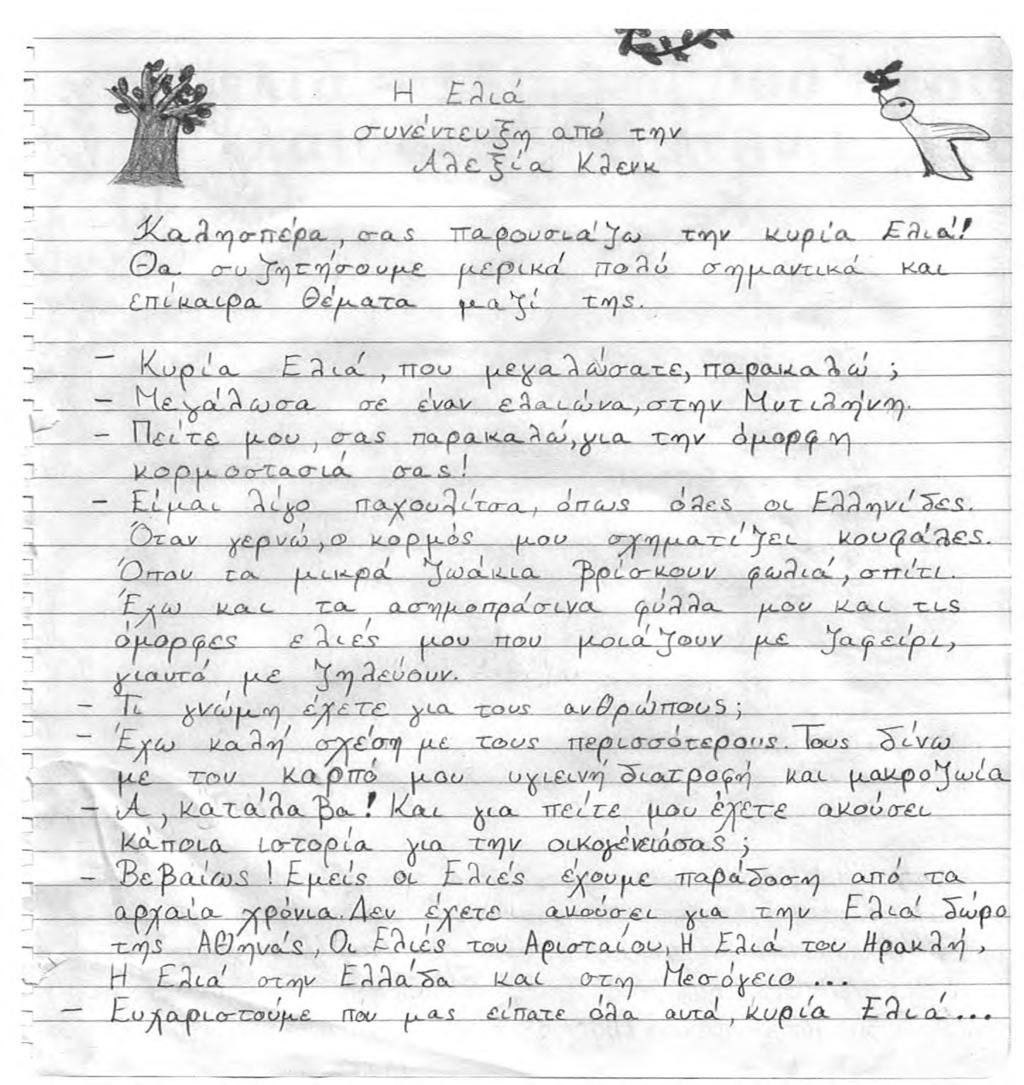 Η Ελιά
συνέντευξη από την
Αλεξία Κλενκ
Καλησπέρα, σας παρουσιάζω την κυρία Ελιά!
Θα συζητήσουμε μερικά πολύ σημαντικά και
επίκαιρα θέματα μαζί της.
- Κυρία Ελιά, που μεγαλώσατε, παρακαλώ;
- Μεγάλωσα σε έναν ελαιώνα, στην Μυτιλήνη.
- Πείτε μου, σας παρακαλώ, για την όμορφη
κορμοστασιά σας!
- Είμαι λίγο παχουλίτσα, όπως όλες οι Ελληνίδες.
Όταν γερνώ, ο κορμός μου σχηματίζει κουφάλες.
Όπου τα μικρά ζωάκια βρίσκουν φωλιά, σπίτι.
Έχω και τα ασημοπράσινα φύλλα μου και τις
όμορφες ελιές μου που μοιάζουν με ζαφείρι,
γιαυτό με ζηλεύουν.
- Τι γνώμη έχετε για τους ανθρώπους;
- Έχω καλή σχέση με τους περισσότερους. Τους δίνω
με τον καρπό μου υγιεινή διατροφή και μακροζωία
- Α, κατάλαβα! Και για πείτε μου έχετε ακούσει
κάποια ιστορία για την οικογένειάσας;
- Βεβαίως! Εμείς οι Ελιές έχουμε παράδοση από τα
αρχαία χρόνια. Δεν έχετε ακούσει για την Ελιά δώρο
της Αθηνάς, Οι Ελιές του Αρισταίου, Η Ελιά του Ηρακλή,
Η Ελιά στην Ελλάδα και στη Μεσόγειο...
- Ευχαριστούμε που μας είπατε όλα αυτά, κυρία Ελιά...